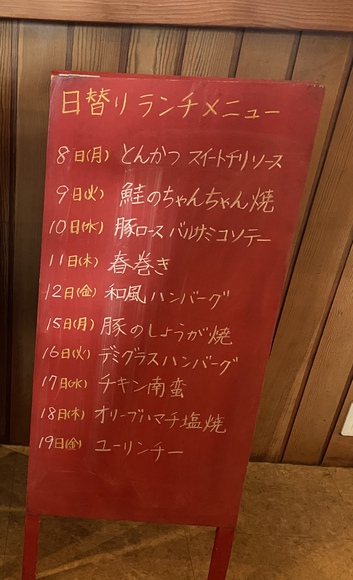 日替りランチメニュー
8日(月) とんかつ スイートチリソース
9日(火) 鮭のちゃんちゃん焼
10日(水) 豚ロース バルサミコソテー
11日(木) 春巻き
12日(金) 和風ハンバーグ
15日(月) 豚のしょうが焼
16日(火) デミグラスハンバーグ
17日(水) チキン南蛮
18日(木) オリーブハマチ塩焼
19日(金) ユーリンチー